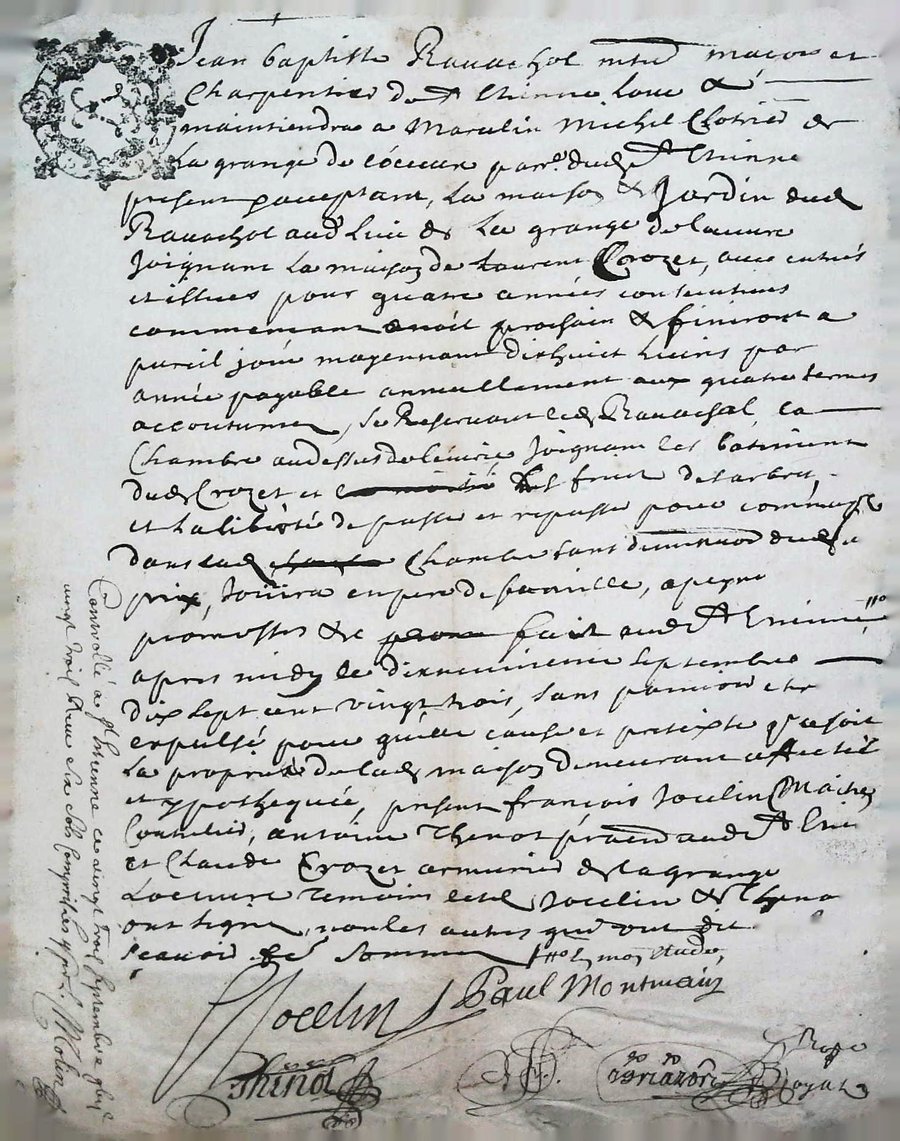 Jean baptiste Ravachol mtre macon et
Charpentier de st Etienne Loue &
maintiendra a Marcelin Michel Clotrier de
La grange de l'oeuvre par. dud st Etienne
present & acceptant, La maison & Jardin dud
Ravachol aud Lieu de La grange de loeuvre
Joignant La maison de Laurent Crozet, avec entrés
et issues pour quatre années consecutives
commencant a noël prochain & finiront a
pareil jour moyennant dixhuict Livres par
année payable annuellement aux quatre termes
accoutumes, se Reservant led Ravachol, La
Chambre audessus de lécurie Joignant les batiment
dud Crozet et les fruit des arbres,
et La liberté de passe et repasse pour
dans lad Chambre sans diminution dud
prix, Jouira en pere de famille, a peyne
promettes &c fait aud st Etienne
apres midy le dixneuvieme septembre
dix sept cent vingt trois, sans pouvoir etre
expulsé pour quelle cause et pretexte que se soit
La proprieté de lad maison demeurant affecté
et ypothequée, present françois Jocelin Maitre
Coutelier, antoine Thenot praticien aud st Etie
et Claude Crozet armurier de la grange
Loeuvre Temoins led Jocelin & Theno
ont signe, non les autres qui ont dit
scavoir de ce Sommes
Jocelin Paul Montmain
Thinot
Royat
Controllé a st Etienne ce vingt trois septembre
vingt trois Reçu six sols Molin